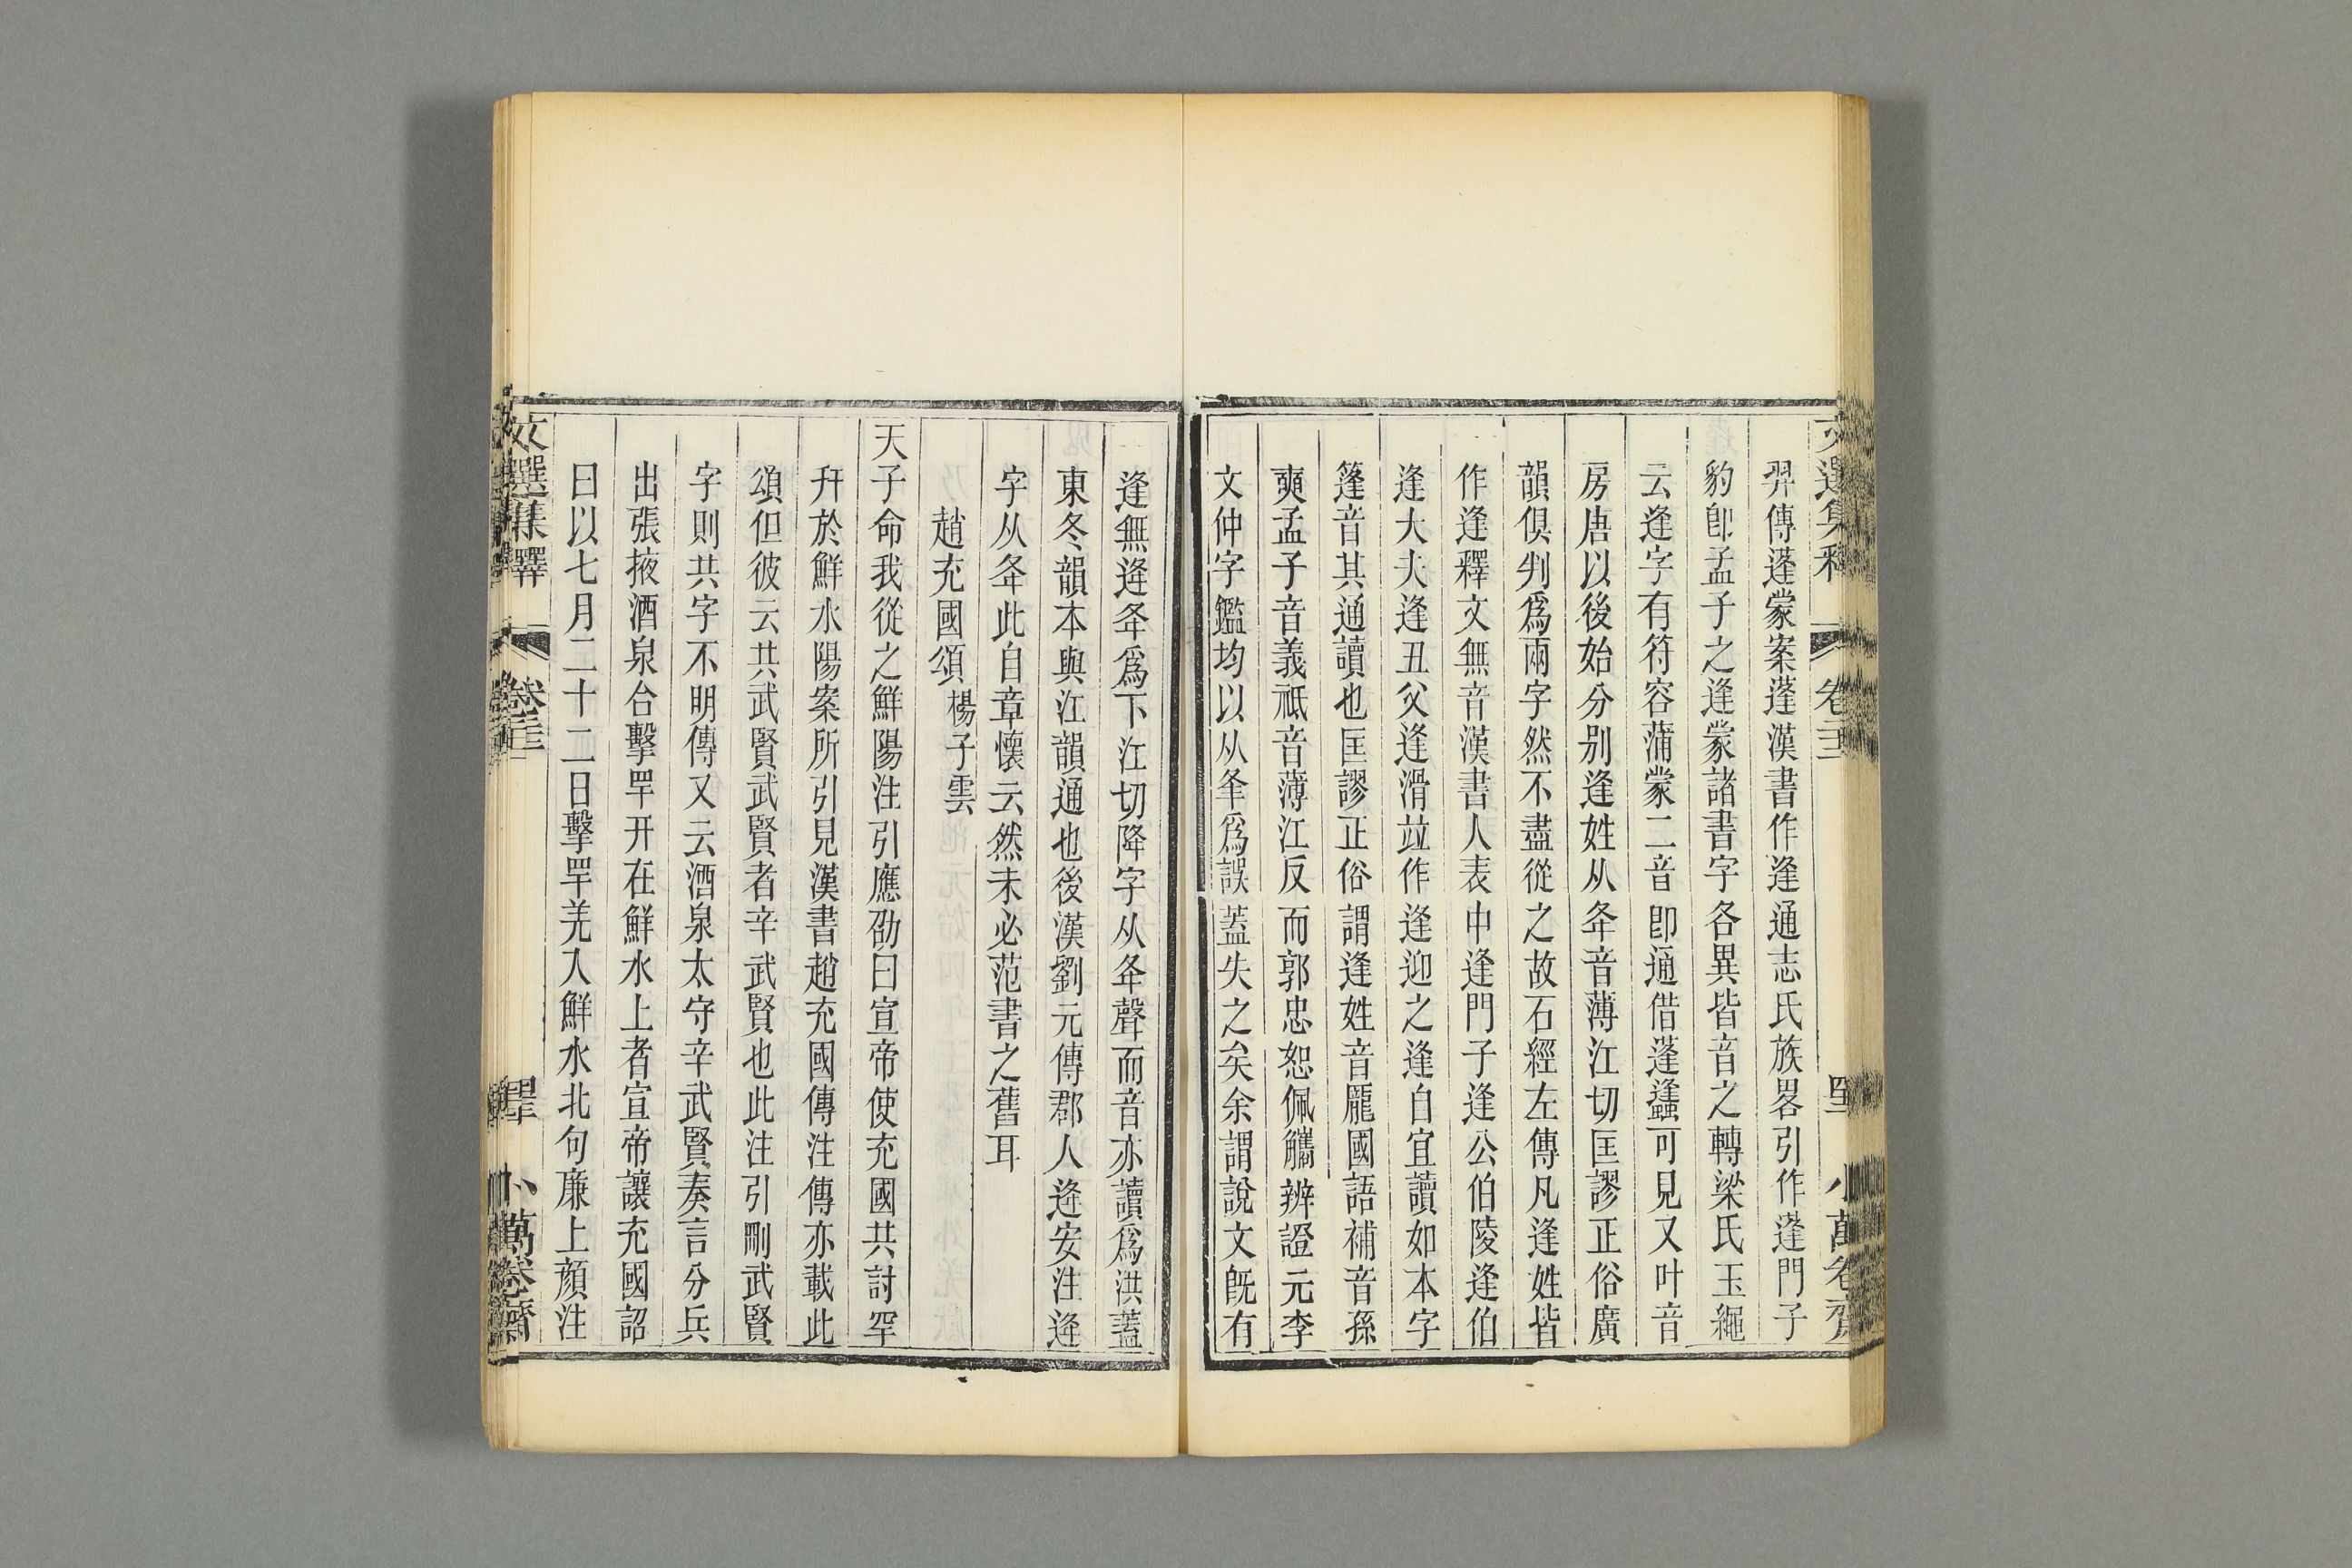 文選集釋 卷二十三 小萬卷齋
羿傳蓬蒙案蓬漢書作逢通志氏族畧引作蓬門子
豹卽孟子之逢蒙諸書字各異皆音之轉梁氏玉繩
云逢字有符容蒲蒙二音卽通借蓬蠭可見又叶音
房唐以後始分别逄姓从夅音薄江切匡謬正俗廣
韻俱判爲兩字然不盡從之故石經左傳凡逢姓皆
作逢釋文無音漢書人表中逢門子逢公伯陵逢伯
逢大夫逢丑父逢滑竝作逢迎之逢自宜讀如本字
篷音其通讀也匡謬正俗謂逢姓音龎國語補音孫
奭孟子音義祗音薄江反而郭忠恕佩觿辨證元李
文仲字鑑均以从夆爲誤蓋失之矣余謂說文旣有
逢無逄夅爲下江切降字从夅聲而音亦讀爲洪蓋
東冬韻本與江韻通也後漢劉元傳郡人逄安注逄
字从夅此自章懷云然未必范書之舊耳
趙充國頌 楊子雲
天子命我從之鮮陽注引應劭曰宣帝使充國共討罕
幵於鮮水陽案所引見漢書趙充國傳注傳亦載此
頌但彼云共武賢武賢者辛武賢也此注引刪武賢
字則共字不明傳又云酒泉太守辛武賢奏言分兵
出張掖酒泉合擊罕幵在鮮水上者宣帝讓充國詔
曰以七月二十二日擊罕羌入鮮水北句廉上顏注
文選集釋 卷二十三 小萬卷齋